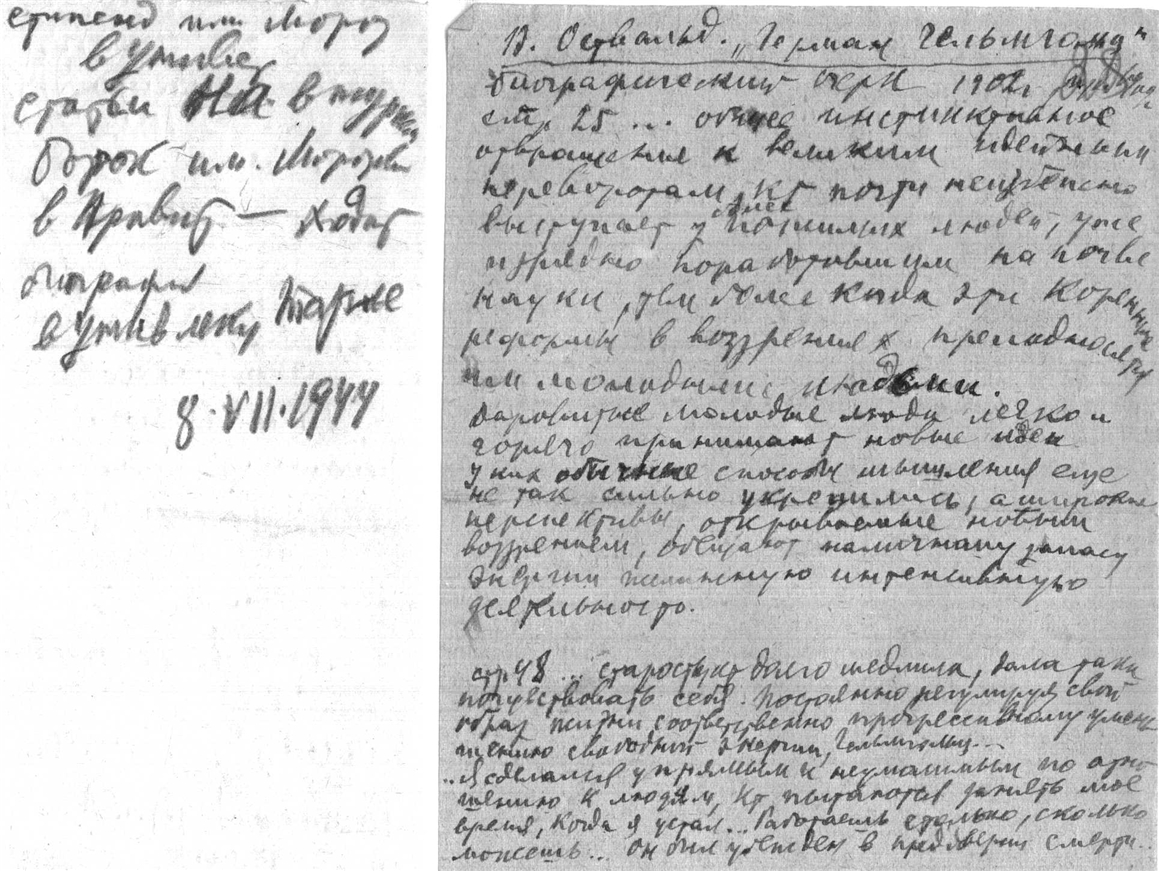 стипенд им. Мороз
в универ
статьи на в журн
Борок им. Морозова
в Архив — ходат
биография
в универ леку Тарле
8.VII.1944
В. Оствальд. „Герман Гельмгольц"
биографический очерк 1902г
стр 25 ... общее инстинктивное
отвращения к великим идейным
переворотам, кт почти неизбежно
выступает у более пожилых людей, уже
изрядно поработавшим на почве
науки, тем более когда эти коренные
реформы в воззрениях преподносятся
им молодыми людьми.
Даровитые молодые люди легко и
горячо принимают новые идеи
у них обычные способы мышления еще
не так сильно укрепились, а широкие
перспективы, открываемые новым
воззрением, обещают наличному запасу
энергии желанную интенсивную
деятельность.
стр 48 ... старость, кт долго медлила, дала таки
почувствовать себя. Постоянно регулируя свой
образ жизни соответственно прогрессивному умень
шению свободной энергии, Гельмгольц...
..Я сделался упрямым и неумолимым по отно
шению к людям, кт пытаются занять мое
время, когда я устал... Работаешь столько, сколько
можешь... он был убежден в преддверии смерти..